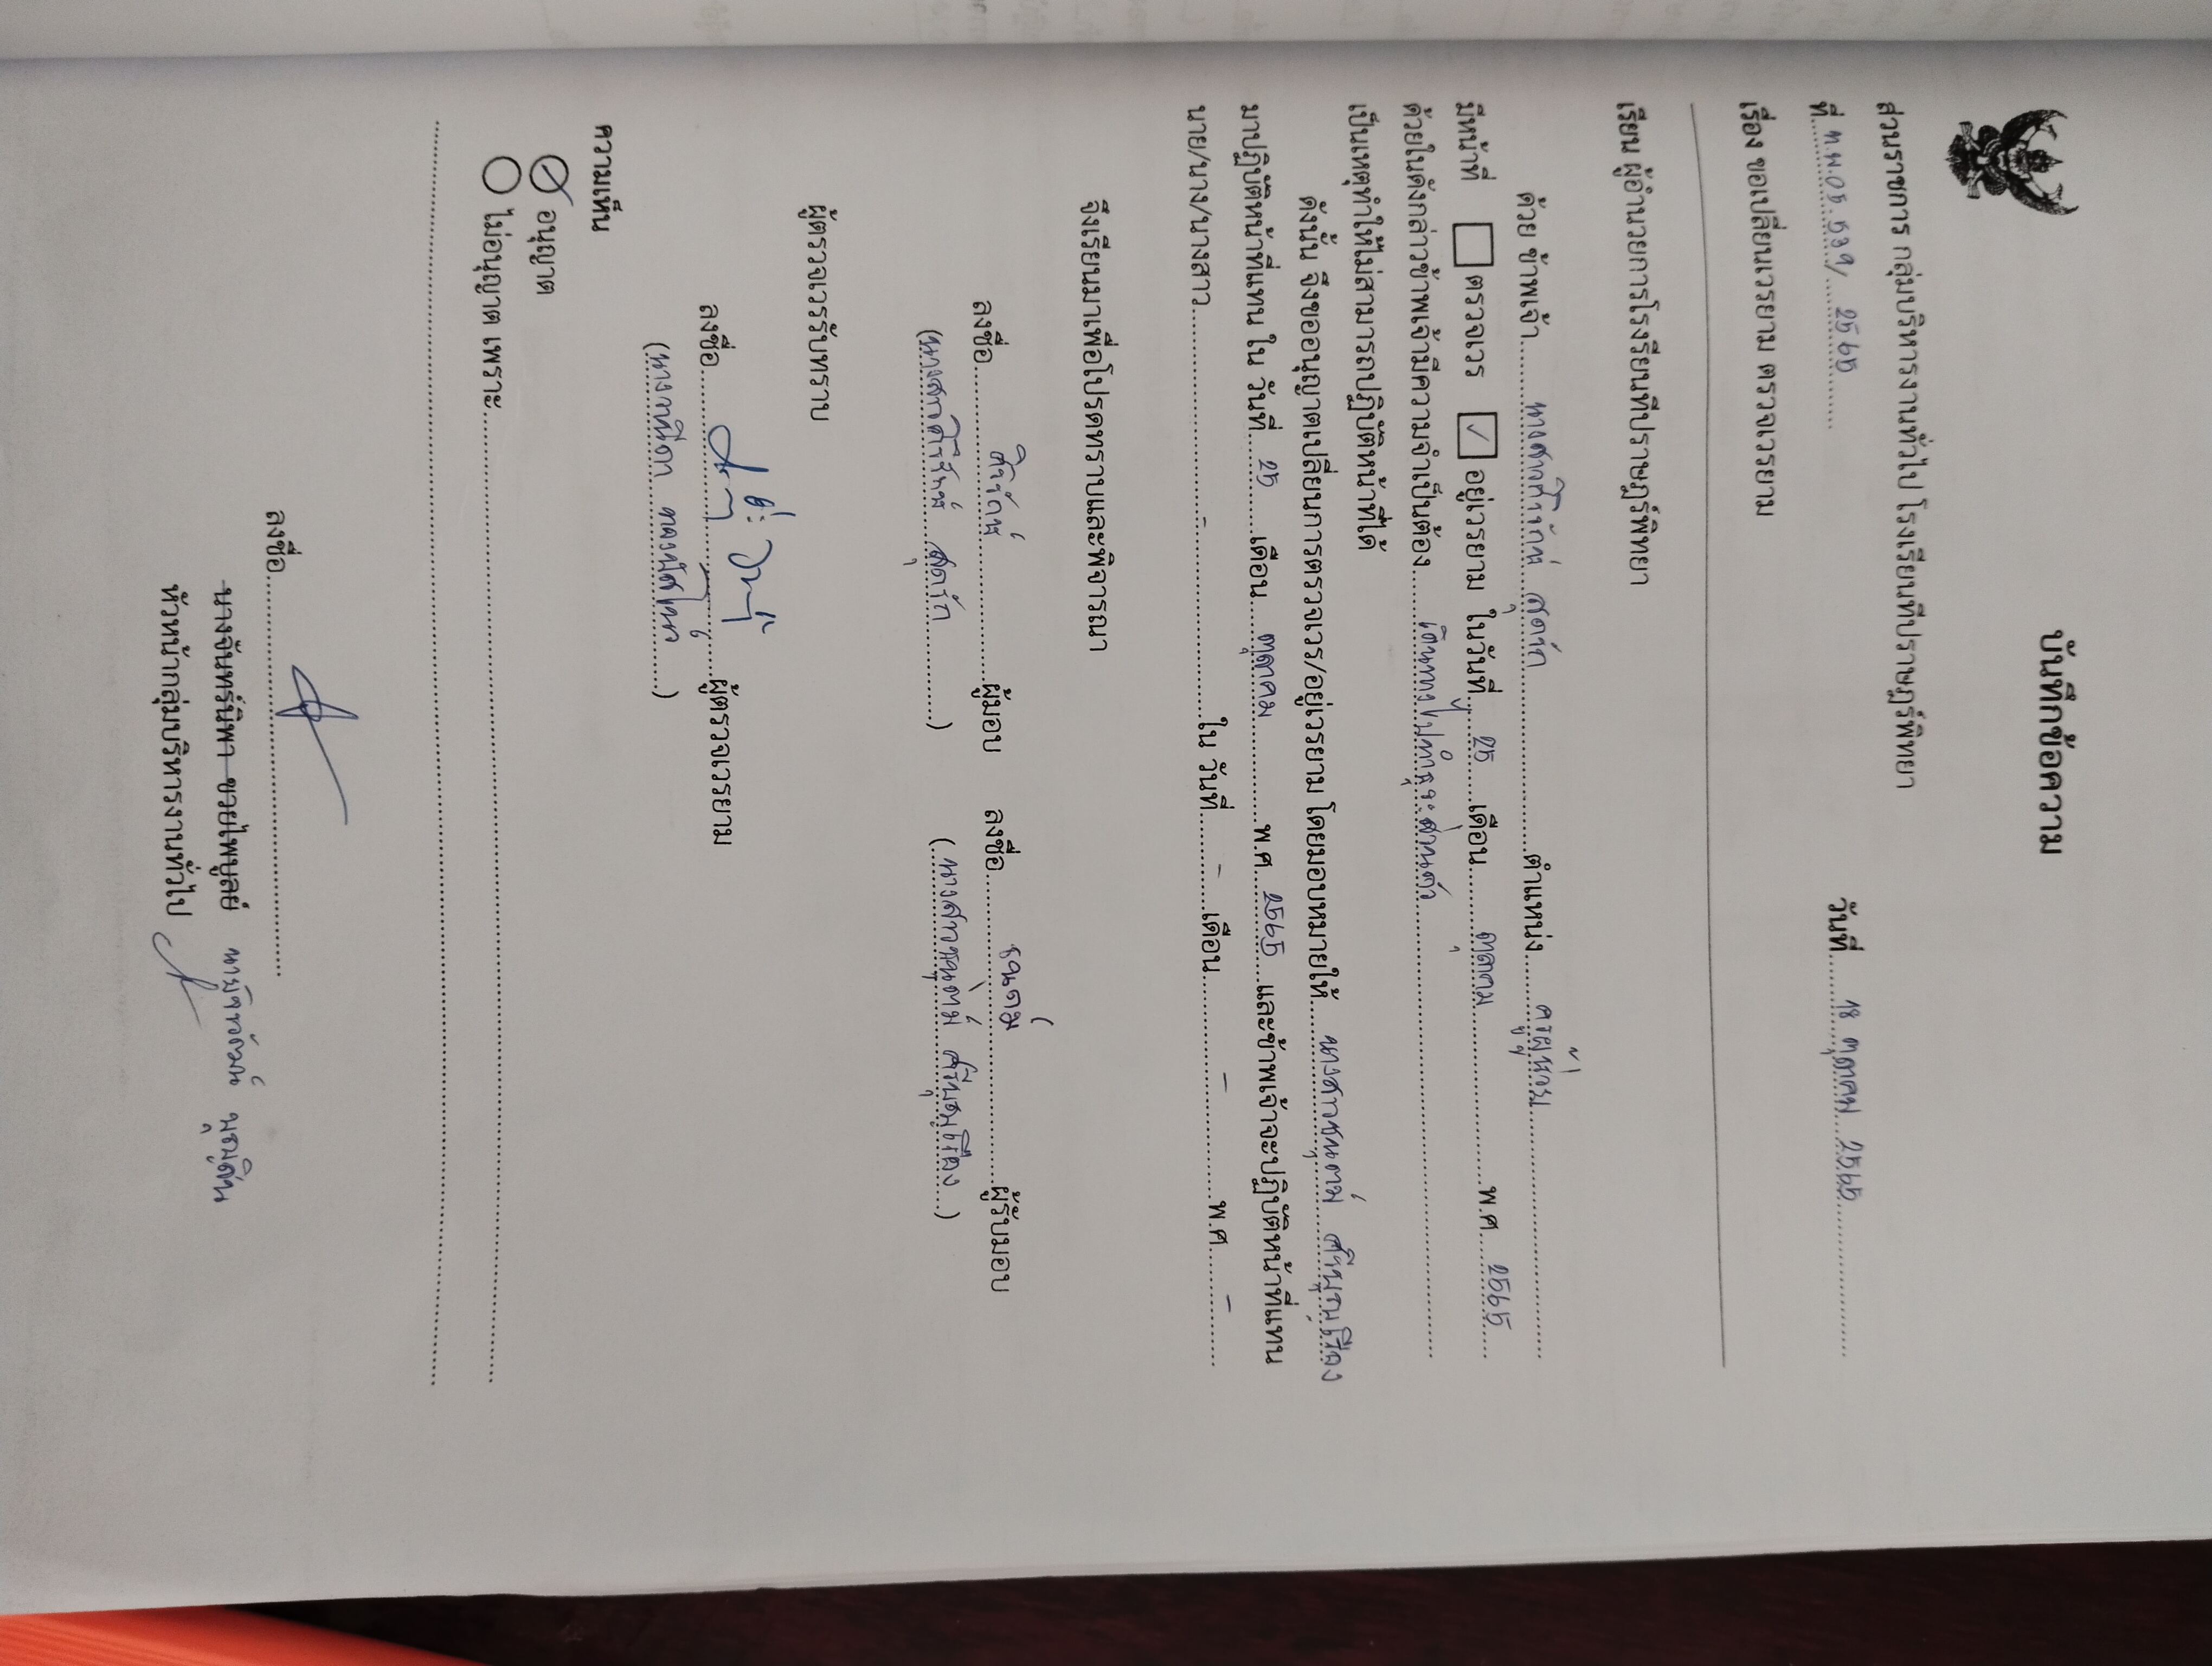 บันทึกข้อความ
ส่วนราชการ กลุ่มบริหารงานทั่วไป โรงเรียนทีปราษฎร์พิทยา
ที่ ท.พ.05.539/ 2565 วันที่ 18 ตุลาคม 2565
เรื่อง ขอเปลี่ยนเวรยาม ตรวจเวรยาม
เรียน ผู้อำนวยการโรงเรียนทีปราษฎร์พิทยา
ด้วย ข้าพเจ้า นางสาวศิริรักษ์ สุดรัก ตำแหน่ง ครูผู้ช่วย
มีหน้าที่ ตรวจเวร ✓ อยู่เวรยาม ในวันที่ 25 เดือน ตุลาคม พ.ศ. 2565
ด้วยในดังกล่าวข้าพเจ้ามีความจำเป็นต้อง เดินทางไปทำธุระส่วนตัว
เป็นเหตุทำให้ไม่สามารถปฏิบัติหน้าที่ได้
ดังนั้น จึงขออนุญาตเปลี่ยนการตรวจเวร/อยู่เวรยาม โดยมอบหมายให้ นางสาวชนุตม์
มาปฏิบัติหน้าที่แทน ใน วันที่ 25 เดือน ตุลาคม พ.ศ. 2565 และข้าพเจ้าจะปฏิบัติหน้าที่แทน
นาย/นาง/นางสาว - ใน วันที่ - เดือน - พ.ศ. -
จึงเรียนมาเพื่อโปรดทราบและพิจารณา
ลงชื่อ ศิริรักษ์ ผู้มอบ ลงชื่อ ผู้รับมอบ
(นางสาวศิริรักษ์ สุดรัก) (นางสาว)
ผู้ตรวจเวรรับทราบ
ลงชื่อ ผู้ตรวจเวรยาม
ความเห็น
อนุญาต
ไม่อนุญาต เพราะ
ลงชื่อ
นางจันทร์นิพา ชวยไพบูลย์
หัวหน้ากลุ่มบริหารงานทั่วไป